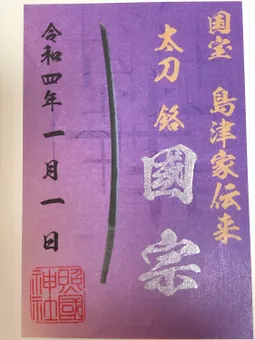 国宝 島津家伝来
太刀 銘
國宗
令和四年 一月一日
照國
神社